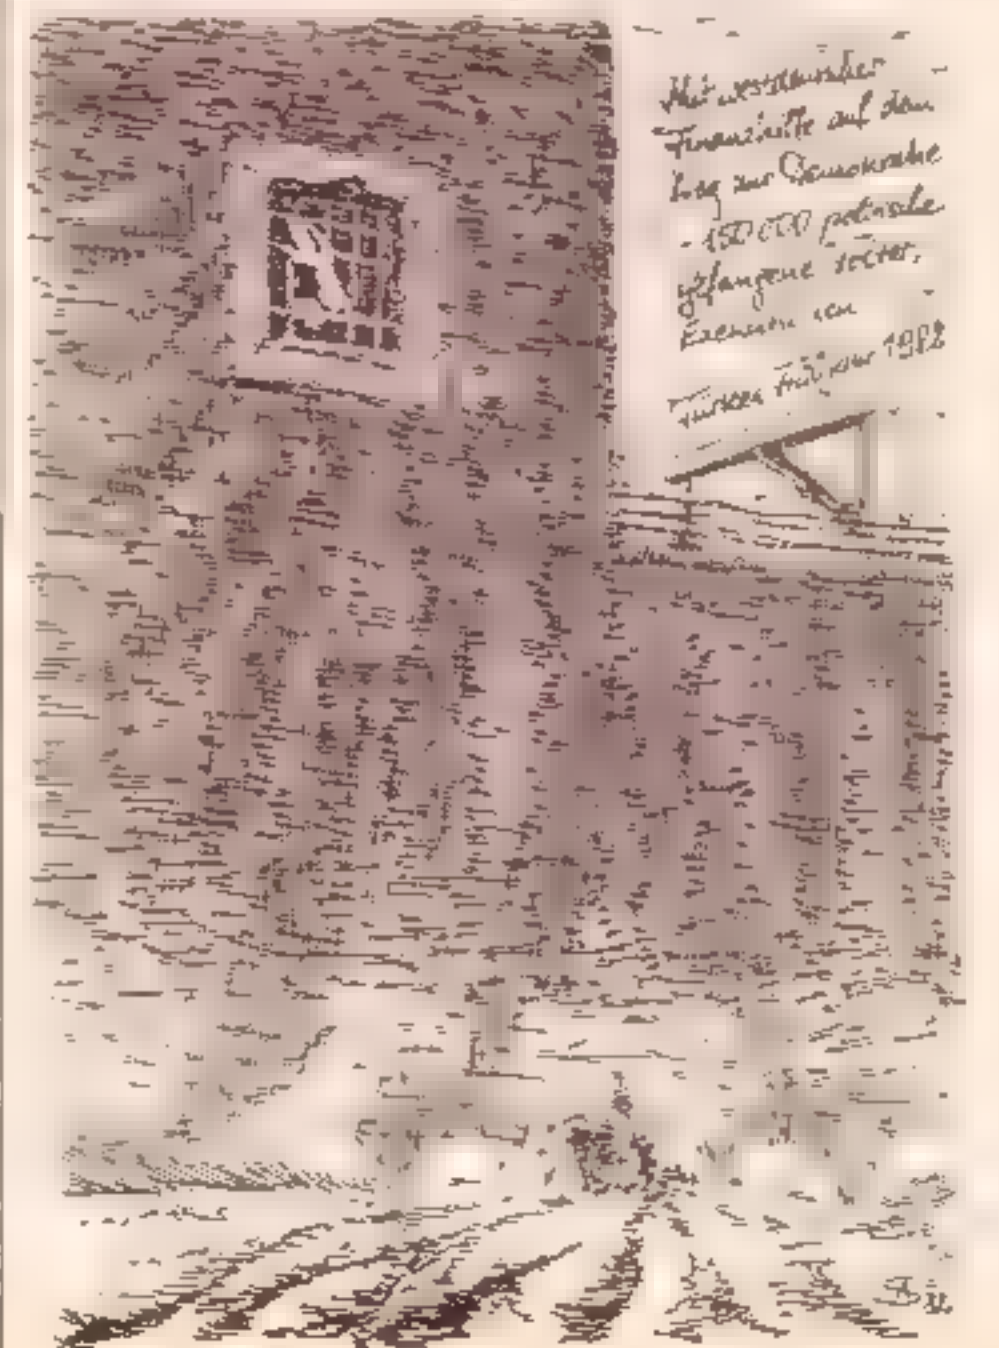 Mit westdeutscher
Finanzhilfe auf dem
Weg zur Demokratie
- 150 000 politische
gefangene
Türken Frühjahr 1982